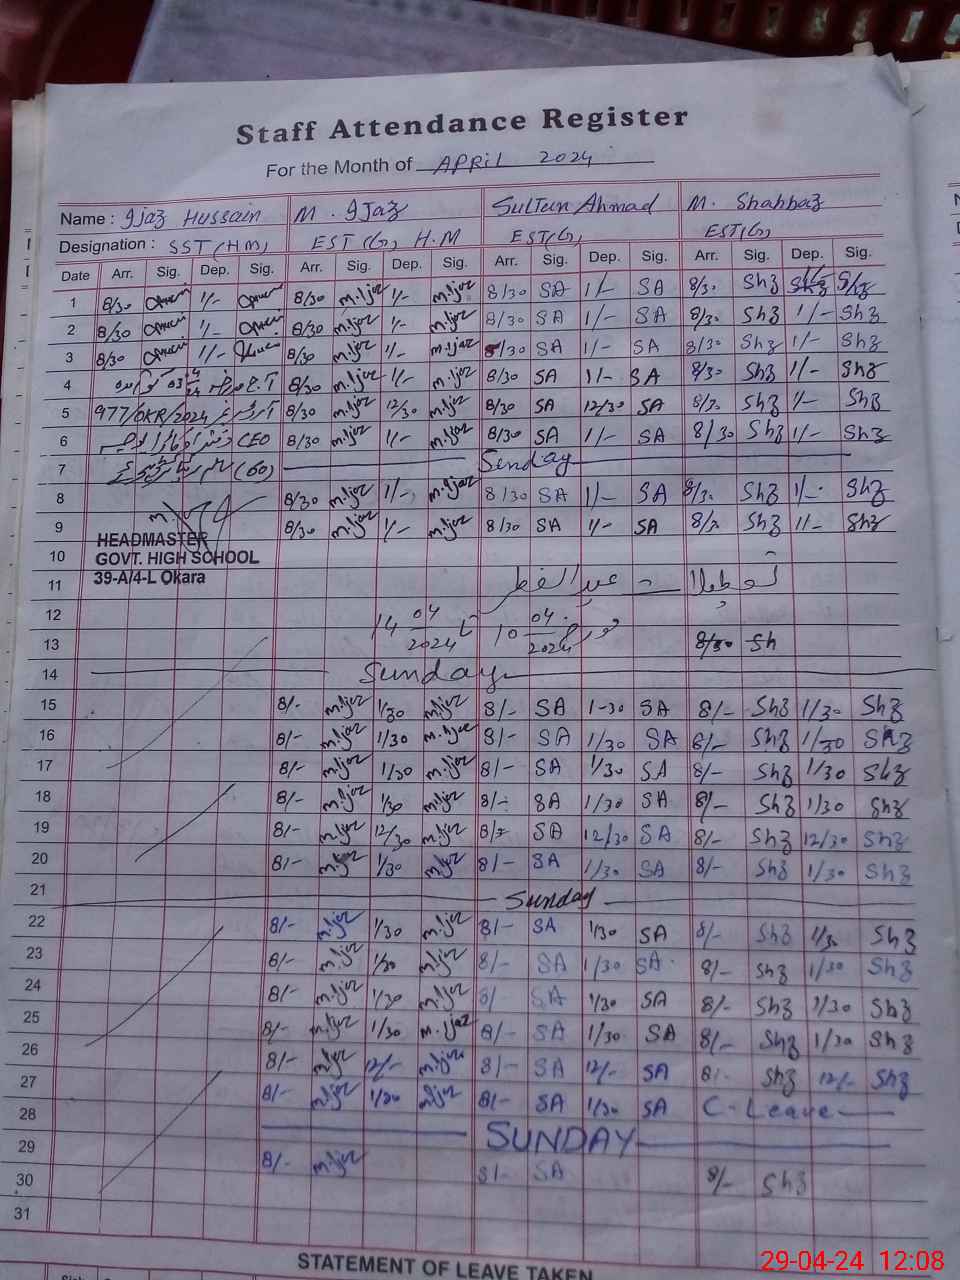 Staff Attendance Register
For the Month of APRIL 2024
Name : Ijaz Hussain M. Ijaz Sultan Ahmad M. Shahbaz
Designation : SST (HM) EST (G) H.M EST(G) EST(G)
Date Arr. Sig. Dep. Sig. Arr. Sig. Dep. Sig. Arr. Sig. Dep. Sig. Arr. Sig. Dep. Sig.
1 8/30 1/- 8/30 m.ijaz 1/- m.ijaz 8/30 SA 1/- SA 8/30 Shz Shz Shz
2 8/30 1/- 8/30 m.ijaz 1/- m.ijaz 8/30 SA 1/- SA 8/30 Shz 1/- Shz
3 8/30 1/- 8/30 m.ijaz 1/- m.ijaz 8/30 SA 1/- SA 8/30 Shz 1/- Shz
4 8/30 m.ijaz 1/- m.ijaz 8/30 SA 1/- SA 8/30 Shz 1/- Shz
5 977/OKR/2024 8/30 m.ijaz 12/30 m.ijaz 8/30 SA 12/30 SA 8/30 Shz 1/- Shz
6 CEO 8/30 m.ijaz 1/- m.ijaz 8/30 SA 1/- SA 8/30 Shz 1/- Shz
7 (60) Sunday
8 8/30 m.ijaz 1/- m.ijaz 8/30 SA 1/- SA 8/30 Shz 1/- Shz
9 8/30 m.ijaz 1/- m.ijaz 8/30 SA 1/- SA 8/30 Shz 1/- Shz
HEADMASTER
10 GOVT. HIGH SCHOOL
39-A/4-L Okara
11 تعطیلات عید الفطر
12 14 04 2024 تا 10 04 2024
13 8/30 Sh
14 Sunday
15 8/- m.ijaz 1/30 m.ijaz 8/- SA 1-30 SA 8/- Shz 1/30 Shz
16 8/- m.ijaz 1/30 m.ijaz 8/- SA 1/30 SA 8/- Shz 1/30 Shz
17 8/- m.ijaz 1/30 m.ijaz 8/- SA 1/30 SA 8/- Shz 1/30 Shz
18 8/- m.ijaz 1/30 m.ijaz 8/- SA 1/30 SA 8/- Shz 1/30 Shz
19 8/- m.ijaz 12/30 m.ijaz 8/- SA 12/30 SA 8/- Shz 12/30 Shz
20 8/- m.ijaz 1/30 m.ijaz 8/- SA 1/30 SA 8/- Shz 1/30 Shz
21 Sunday
22 8/- m.ijaz 1/30 m.ijaz 8/- SA 1/30 SA 8/- Shz 1/30 Shz
23 8/- m.ijaz 1/30 m.ijaz 8/- SA 1/30 SA 8/- Shz 1/30 Shz
24 8/- m.ijaz 1/30 m.ijaz 8/- SA 1/30 SA 8/- Shz 1/30 Shz
25 8/- m.ijaz 1/30 m.ijaz 8/- SA 1/30 SA 8/- Shz 1/30 Shz
26 8/- m.ijaz 12/- m.ijaz 8/- SA 12/- SA 8/- Shz 12/- Shz
27 8/- m.ijaz 1/30 m.ijaz 8/- SA 1/30 SA C-Leave
28 SUNDAY
29 8/- m.ijaz 8/- SA 8/- Shz
30
31
STATEMENT OF LEAVE TAKEN
29-04-24 12:08